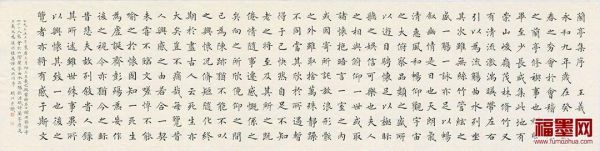 蘭亭集序 王羲之
永和九年歲在癸
丑暮春之初會於會稽山陰
之蘭亭修禊事也群賢
畢至少長咸集此地有
崇山峻嶺茂林修竹又
有清流激湍映帶左右
引以為流觴曲水列坐
其次雖無絲竹管絃之
盛一觴一詠亦足
以暢敘幽情是日也天朗氣
清惠風和暢仰觀宇宙之
大俯察品類之盛所
以遊目騁懷足以極視
聽之娛信可樂也夫人
之相與俯仰一世或取
諸懷抱晤言一室之內
或因寄所託放浪形骸
之外雖取捨萬殊靜躁
不同當其欣於所遇暫
得於己快然自足不知
老之將至及其所之既
倦情隨事遷感慨係之
矣向之所欣俯仰之間
已為陳跡猶不能不以
之興懷況修短隨化終
期於盡古人云死生亦
大矣豈不痛哉每覽昔
人興感之由若合一契
未嘗不臨文嗟悼不能
喻之於懷固知一死生
為虛誕齊彭殤為妄作
後之視今亦猶今之視
昔悲夫故列敘時人錄
其所述雖世殊事異所
以興懷其致一也後之
覽者亦將有感於斯文
福墨网
www.fumozhua.com